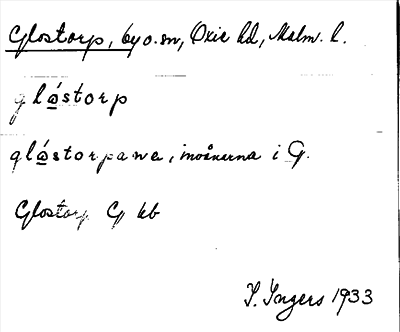 Glostorp, by o. sn, Oxie hd, Malm. l.
glǻstorp
glǻstorpawa, invånarna i G.
Glostorp Gj kb
I. Ingers 1933